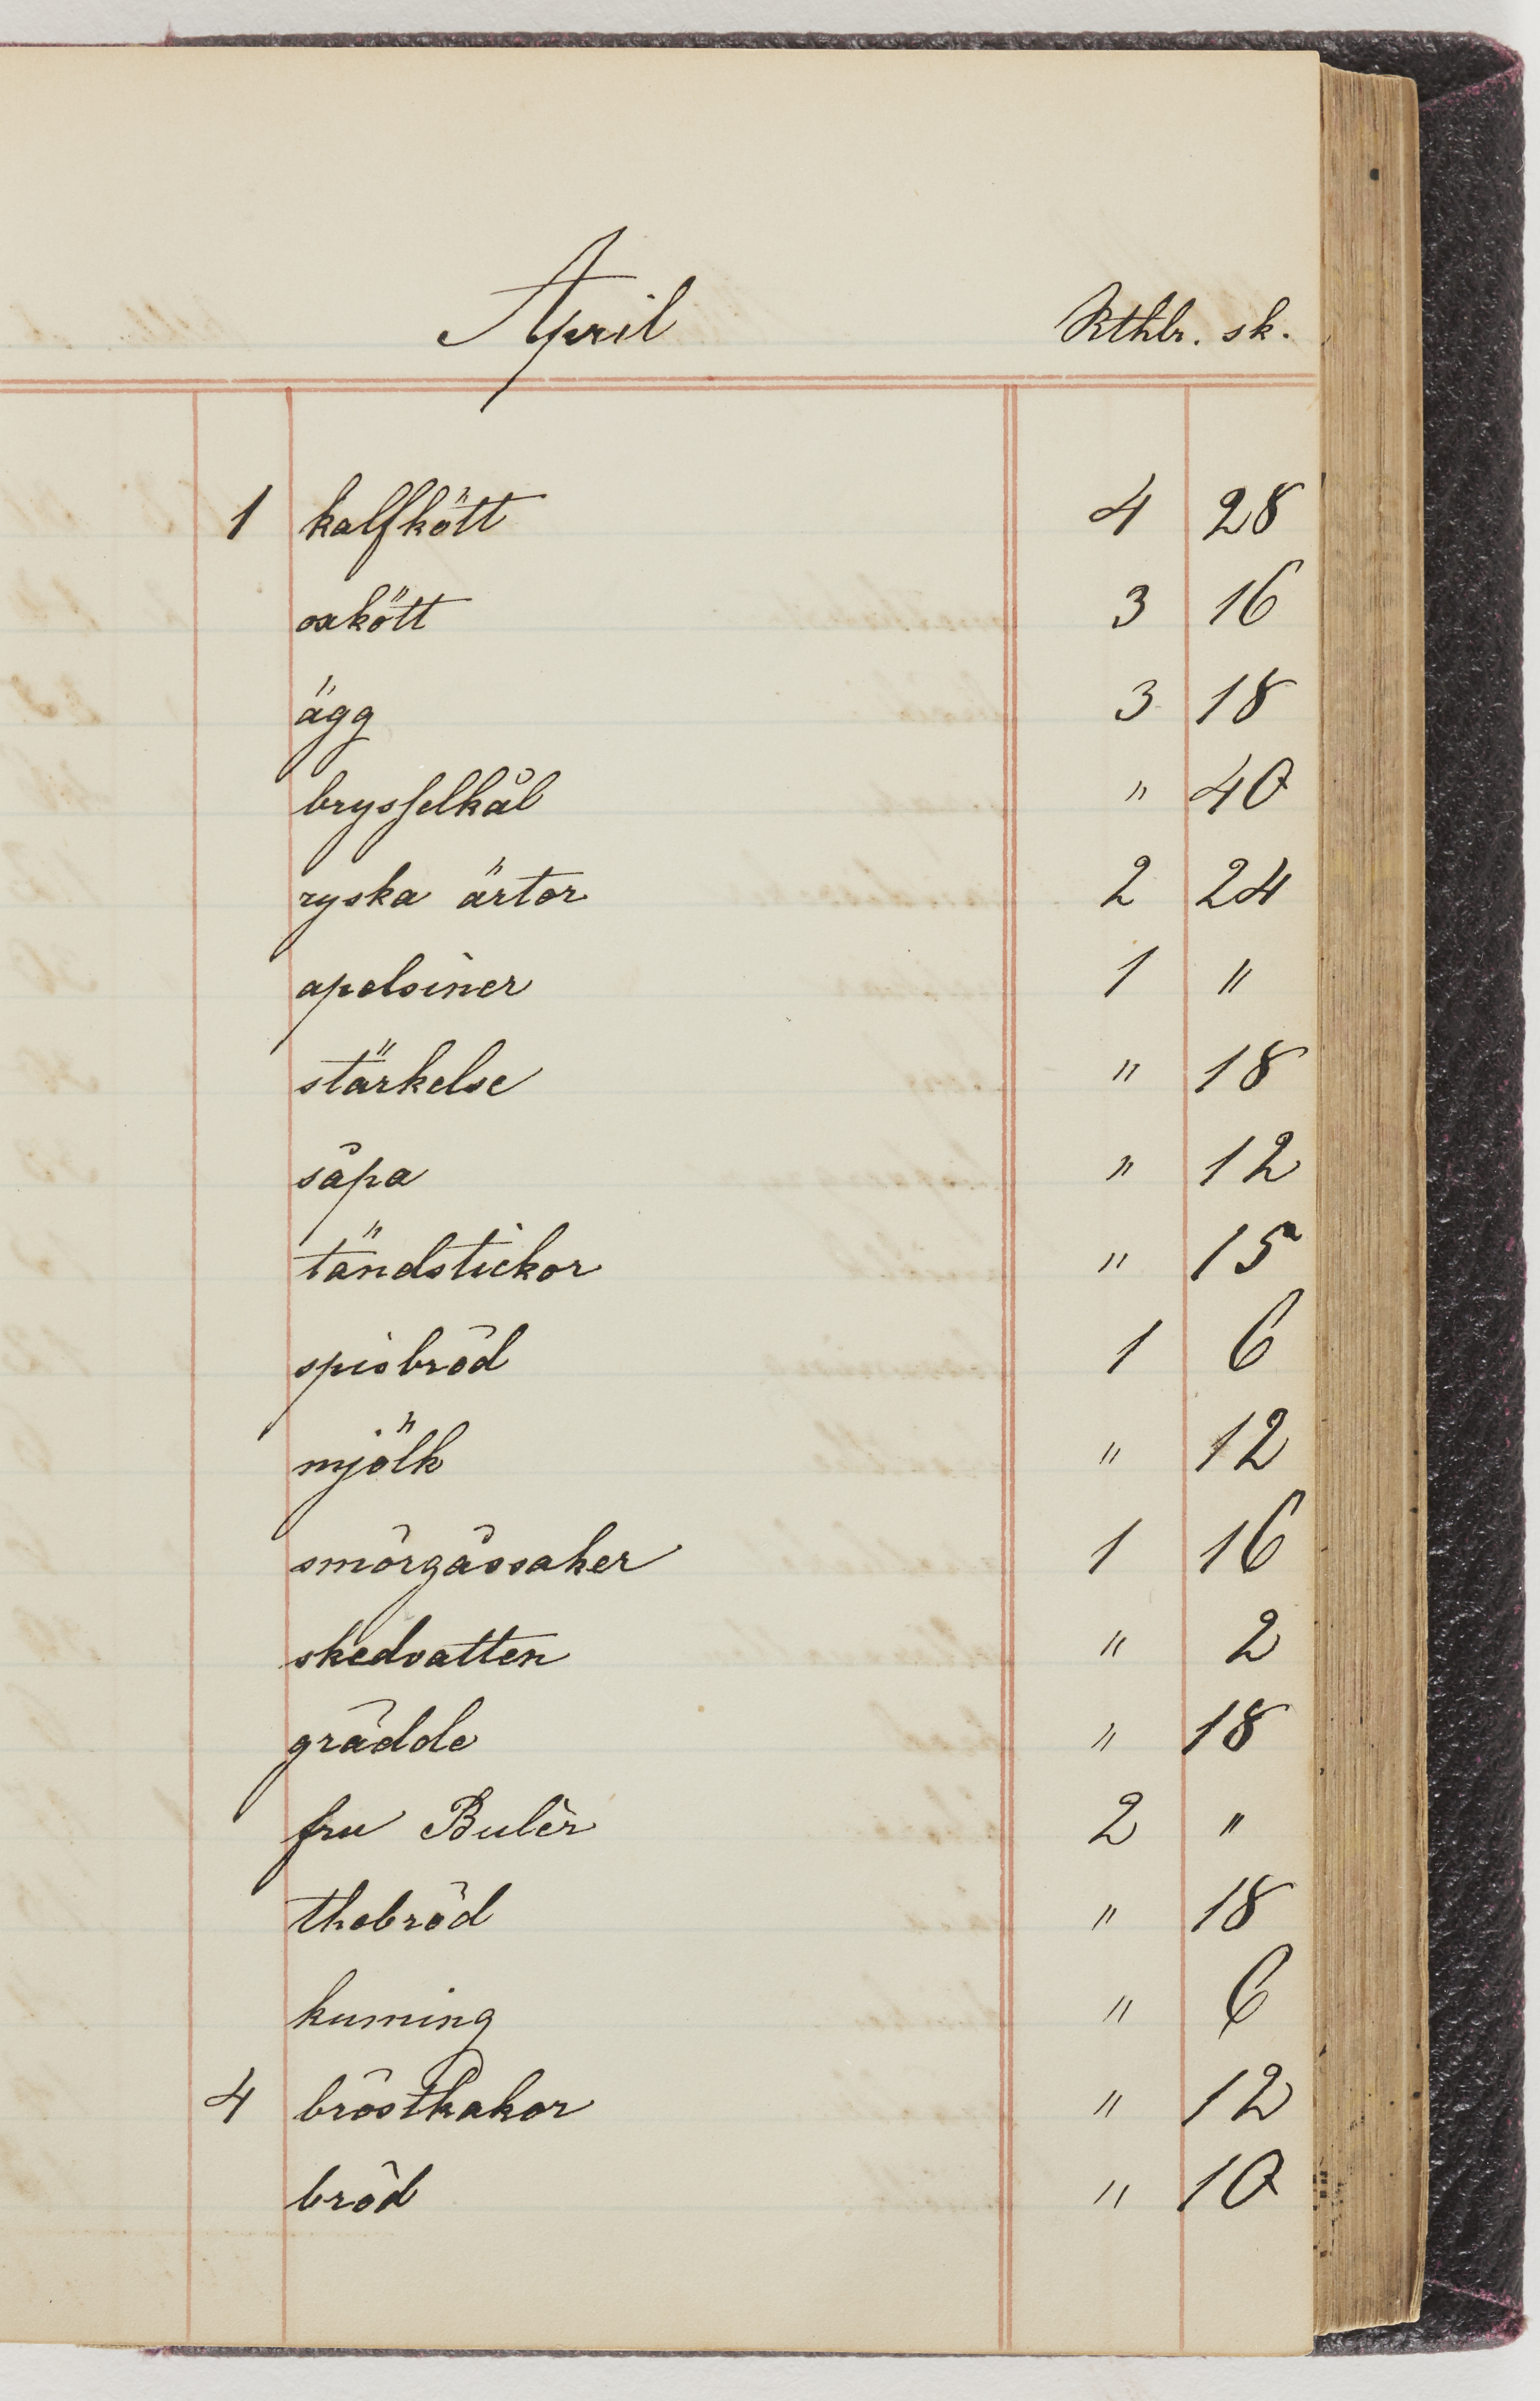 April Rthlr. sk.
1 kalfkött 4 28
oxkött 3 16
ägg 3 18
brysselkål " 40
ryska ärtor 2 24
apelsiner 1 "
stärkelse " 18
såpa " 12
tändstickor " 15
spisbröd 1 6
mjölk " 12
smörgåssaker 1 16
skedvatten " 2
grädde " 18
fru Bulèr 2 "
thebröd " 18
kuming " 6
4 bröstkakor " 12
bröd " 10